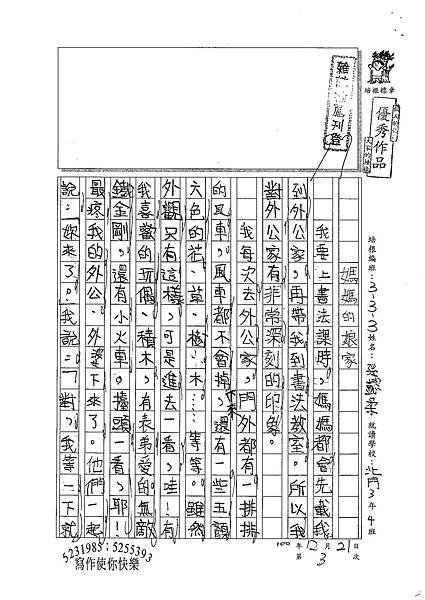 優秀作品
媽媽的娘家
我要上書法課時，媽媽都會先載我
到外公家，再帶我到書法教室。所以我
對外公家有非常深刻的印象。
我每次去外公家，門外都有一排排
的風車，風車都不會掉下來，還有一些五顏
六色的花、草、樹、木……等等。雖然
外觀只有這樣，可是進去一看，哇！有
我喜歡的玩偶、積木，有表弟愛的無敵
鐵金剛，還有小火車。抬頭一看，耶！
最疼我的外公、外婆下來了。他們一起
說：妳來了。我說：「對，我等一下就
培根編班：3-3-3 姓名： 就讀學校：北門3年4班
100年12月21日 第3次
5231985；5255393
寫作使你快樂